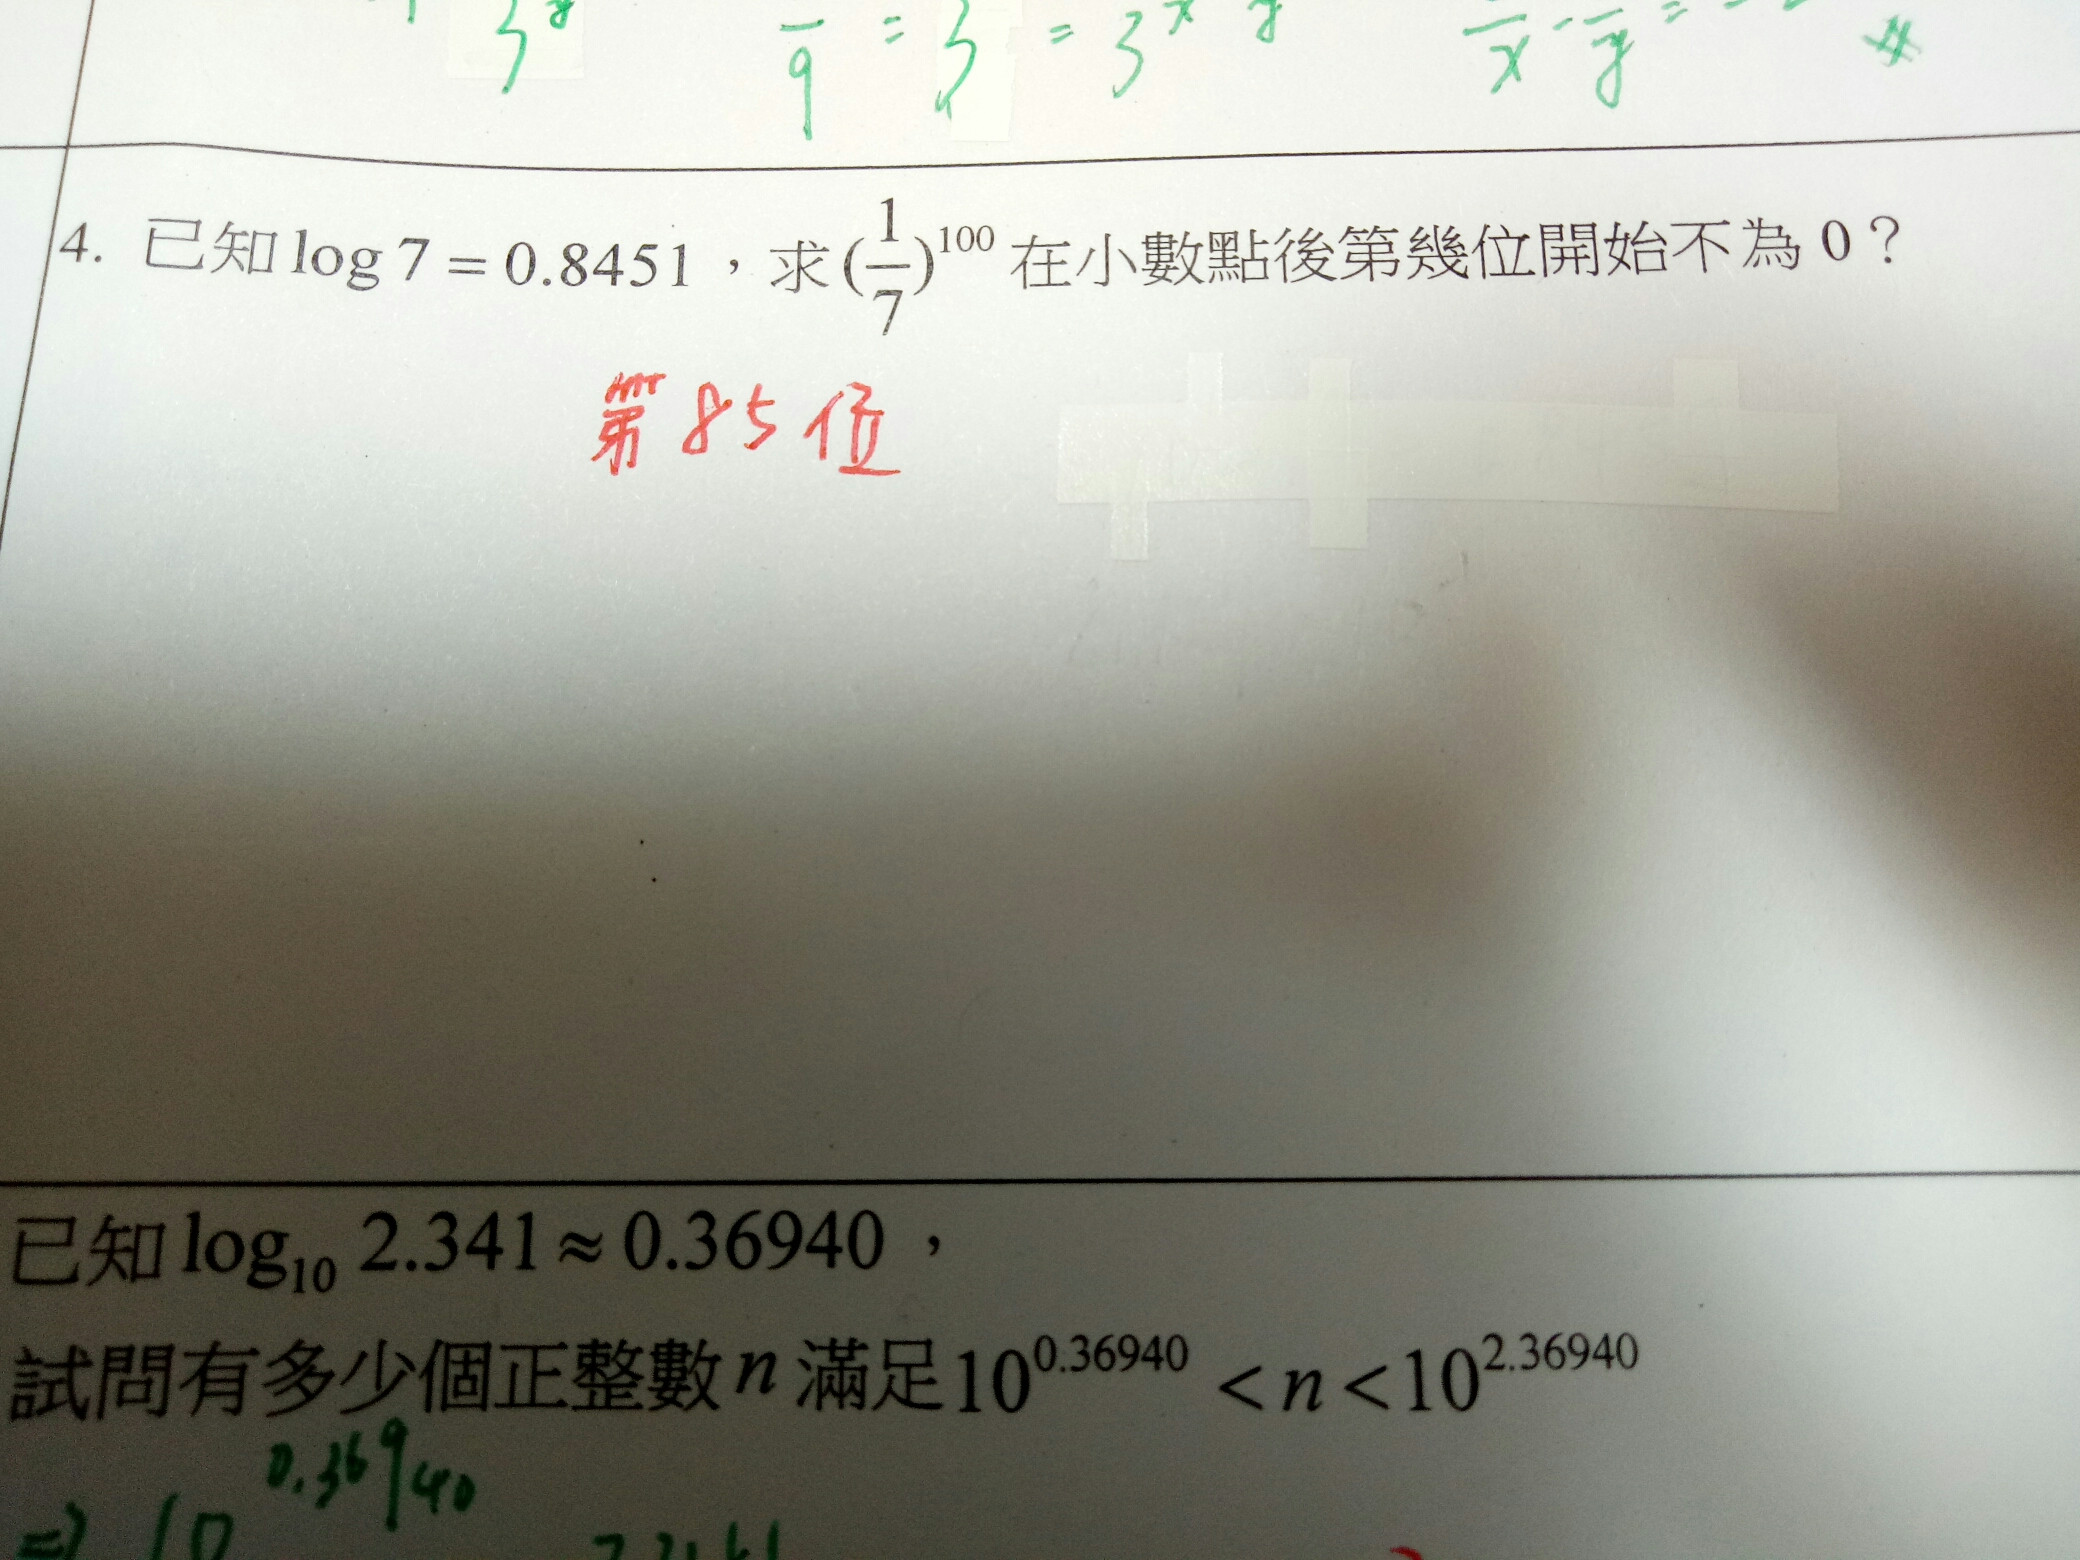 1/9 = 3 = 3^x y
4. 已知 log 7 = 0.8451，求 (1/7)^100 在小數點後第幾位開始不為 0？
第 85 位
已知 log₁₀ 2.341 ≈ 0.36940，
試問有多少個正整數 n 滿足 10^0.36940 < n < 10^2.36940
⇒ 10^0.36940